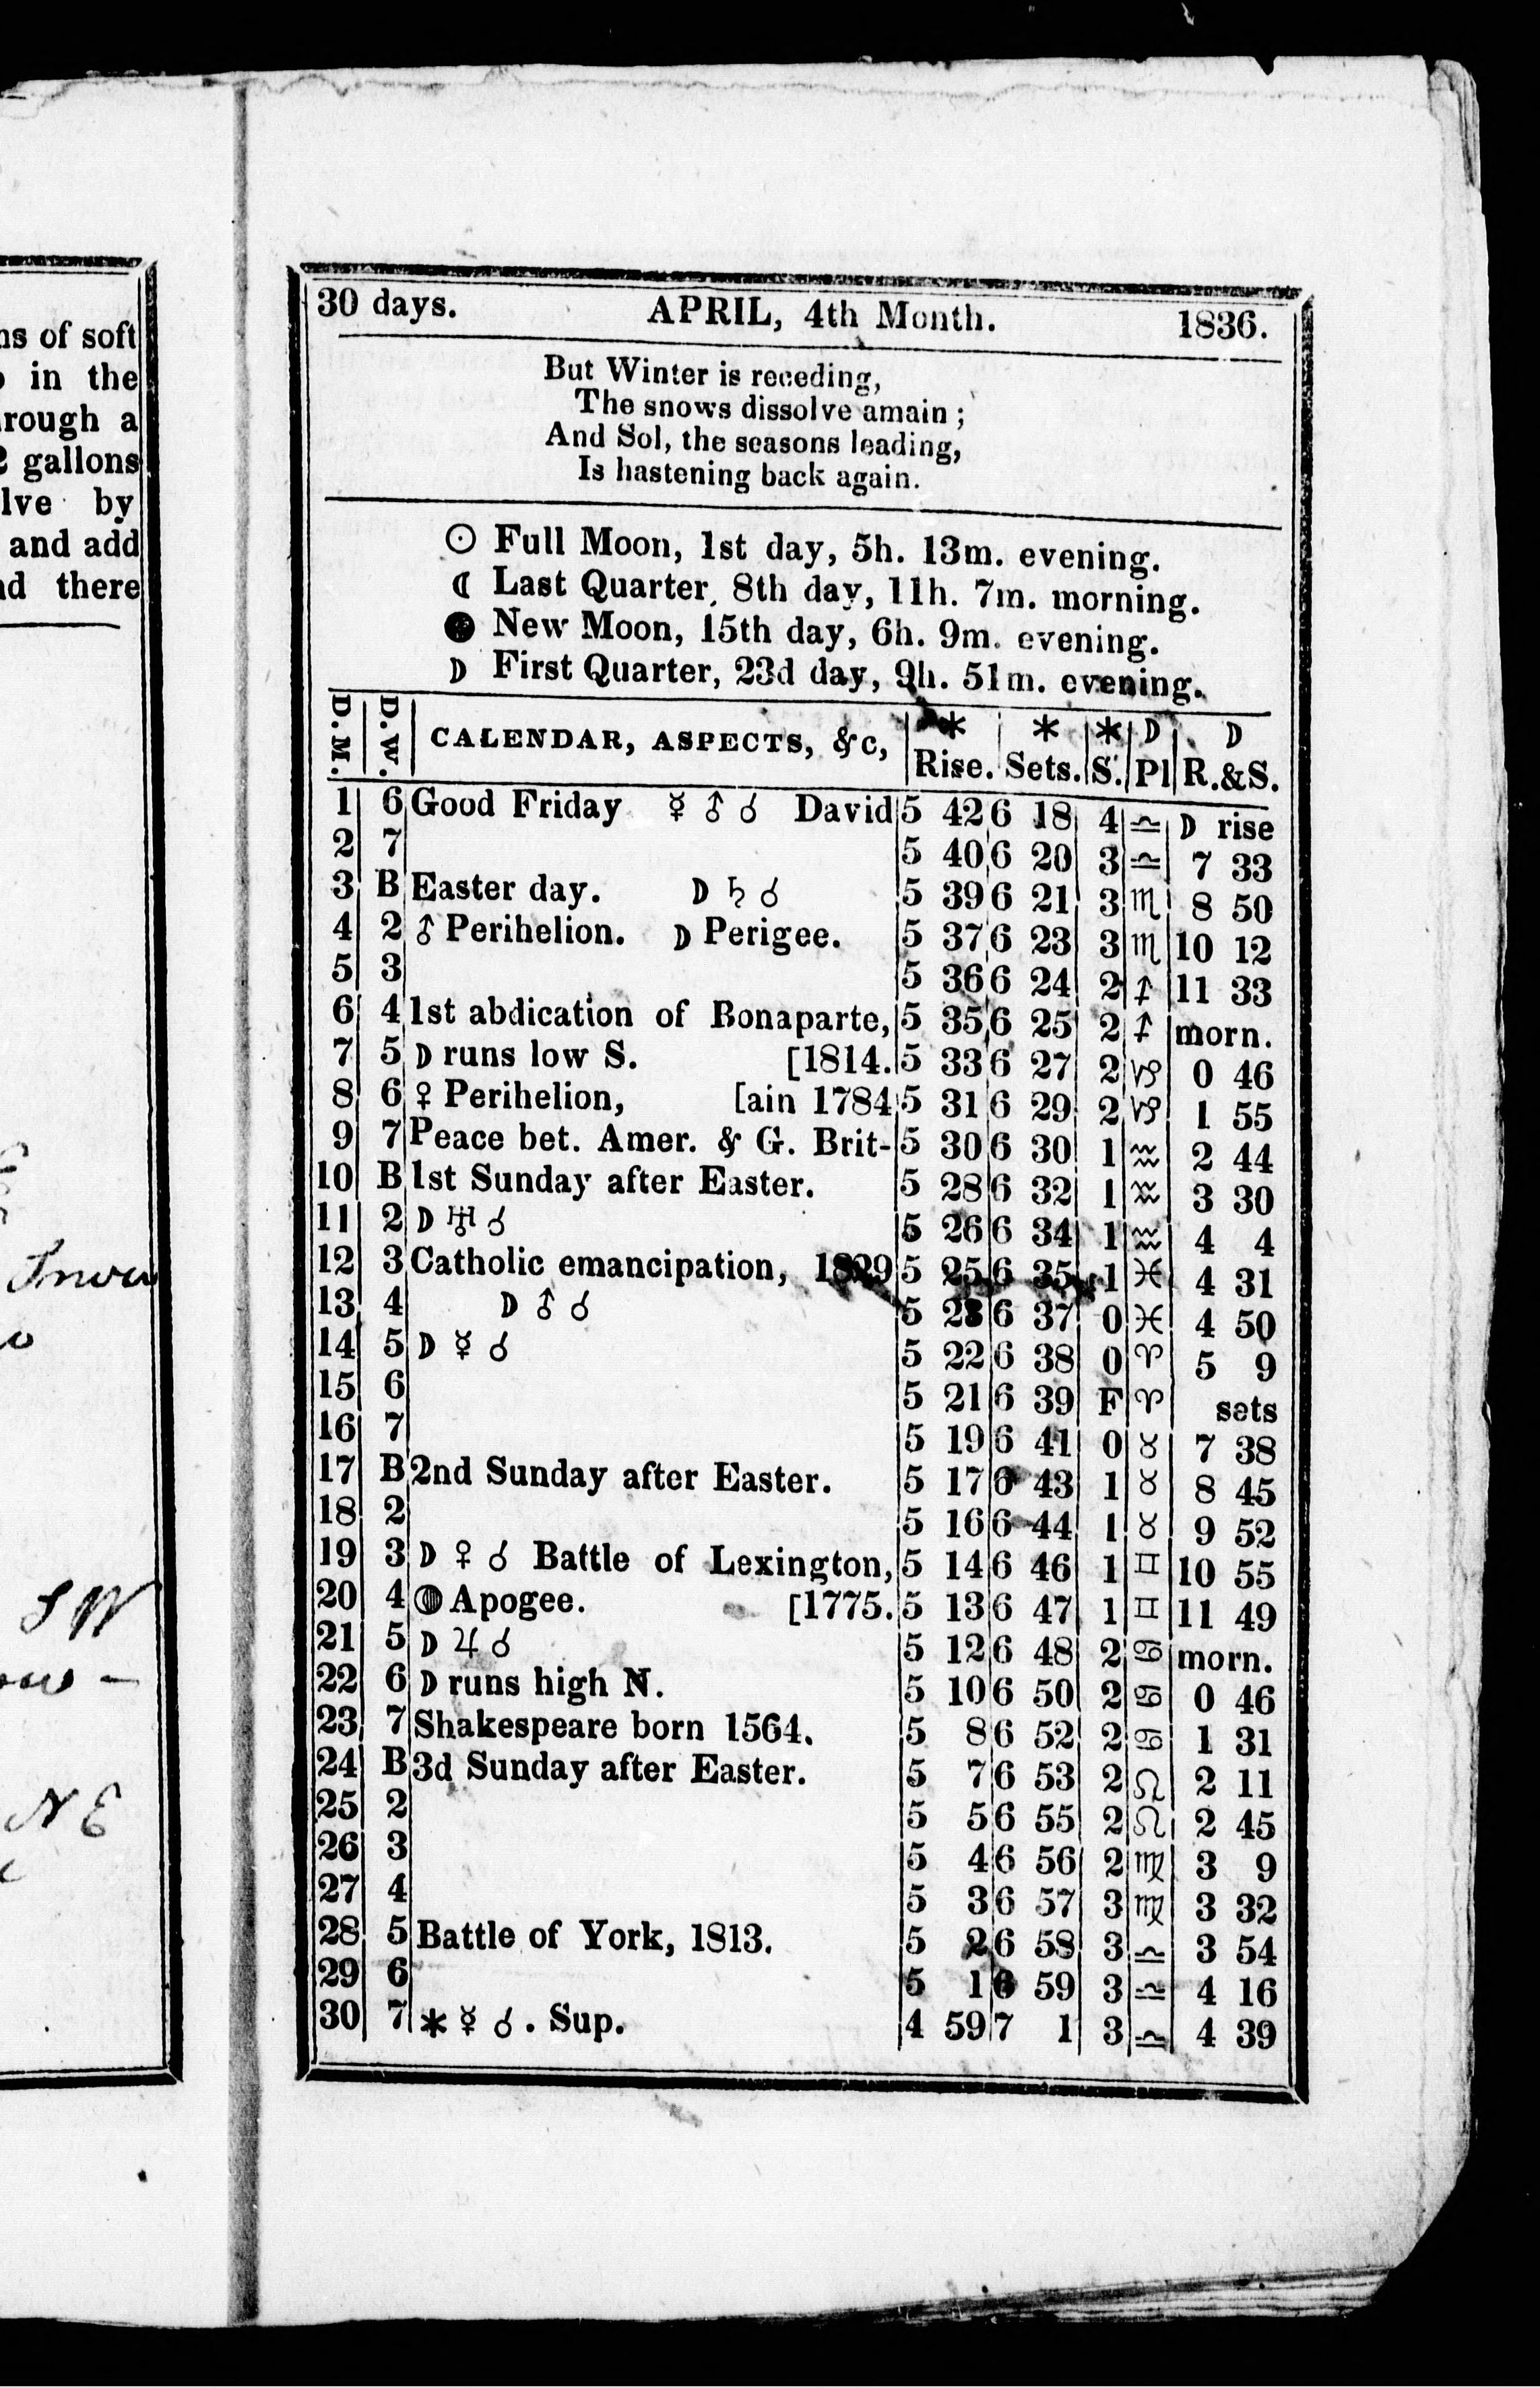 ns of soft
in the
rough a
gallons
lve by
and add
d there
S W
N E
30 days. APRIL, 4th Month. 1836.
But Winter is receding,
The snows dissolve amain ;
And Sol, the seasons leading,
Is hastening back again.
☉ Full Moon, 1st day, 5h. 13m. evening.
☾ Last Quarter, 8th day, 11h. 7m. morning.
● New Moon, 15th day, 6h. 9m. evening.
☽ First Quarter, 23d day, 9h. 51m. evening.
D.M. D.W. CALENDAR, ASPECTS, &c, * Rise. * Sets. * S. ☽ Pl ☽ R.&S.
1 6 Good Friday ☿ ♂ ☌ David 5 42 6 18 4 ♎ ☽ rise
2 7 5 40 6 20 3 ♎ 7 33
3 B Easter day. ☽ ♄ ☌ 5 39 6 21 3 ♏ 8 50
4 2 ♂ Perihelion. ☽ Perigee. 5 37 6 23 3 ♏ 10 12
5 3 5 36 6 24 2 ♐ 11 33
6 4 1st abdication of Bonaparte, 5 35 6 25 2 ♐ morn.
7 5 ☽ runs low S. [1814. 5 33 6 27 2 ♑ 0 46
8 6 ♀ Perihelion, [ain 1784 5 31 6 29 2 ♑ 1 55
9 7 Peace bet. Amer. & G. Brit- 5 30 6 30 1 ♒ 2 44
10 B 1st Sunday after Easter. 5 28 6 32 1 ♒ 3 30
11 2 ☽ ♅ ☌ 5 26 6 34 1 ♒ 4 4
12 3 Catholic emancipation, 1829 5 25 6 35 1 ♓ 4 31
13 4 ☽ ♂ ☌ 5 23 6 37 0 ♓ 4 50
14 5 ☽ ☿ ☌ 5 22 6 38 0 ♈ 5 9
15 6 5 21 6 39 F ♈ sets
16 7 5 19 6 41 0 ♉ 7 38
17 B 2nd Sunday after Easter. 5 17 6 43 1 ♉ 8 45
18 2 5 16 6 44 1 ♉ 9 52
19 3 ☽ ♀ ☌ Battle of Lexington, 5 14 6 46 1 ♊ 10 55
20 4 ☽ Apogee. [1775. 5 13 6 47 1 ♊ 11 49
21 5 ☽ ♃ ☌ 5 12 6 48 2 ♋ morn.
22 6 ☽ runs high N. 5 10 6 50 2 ♋ 0 46
23 7 Shakespeare born 1564. 5 8 6 52 2 ♋ 1 31
24 B 3d Sunday after Easter. 5 7 6 53 2 ♌ 2 11
25 2 5 5 6 55 2 ♌ 2 45
26 3 5 4 6 56 2 ♍ 3 9
27 4 5 3 6 57 3 ♍ 3 32
28 5 Battle of York, 1813. 5 2 6 58 3 ♎ 3 54
29 6 5 1 6 59 3 ♎ 4 16
30 7 * ☿ ☌. Sup. 4 59 7 1 3 ♎ 4 39